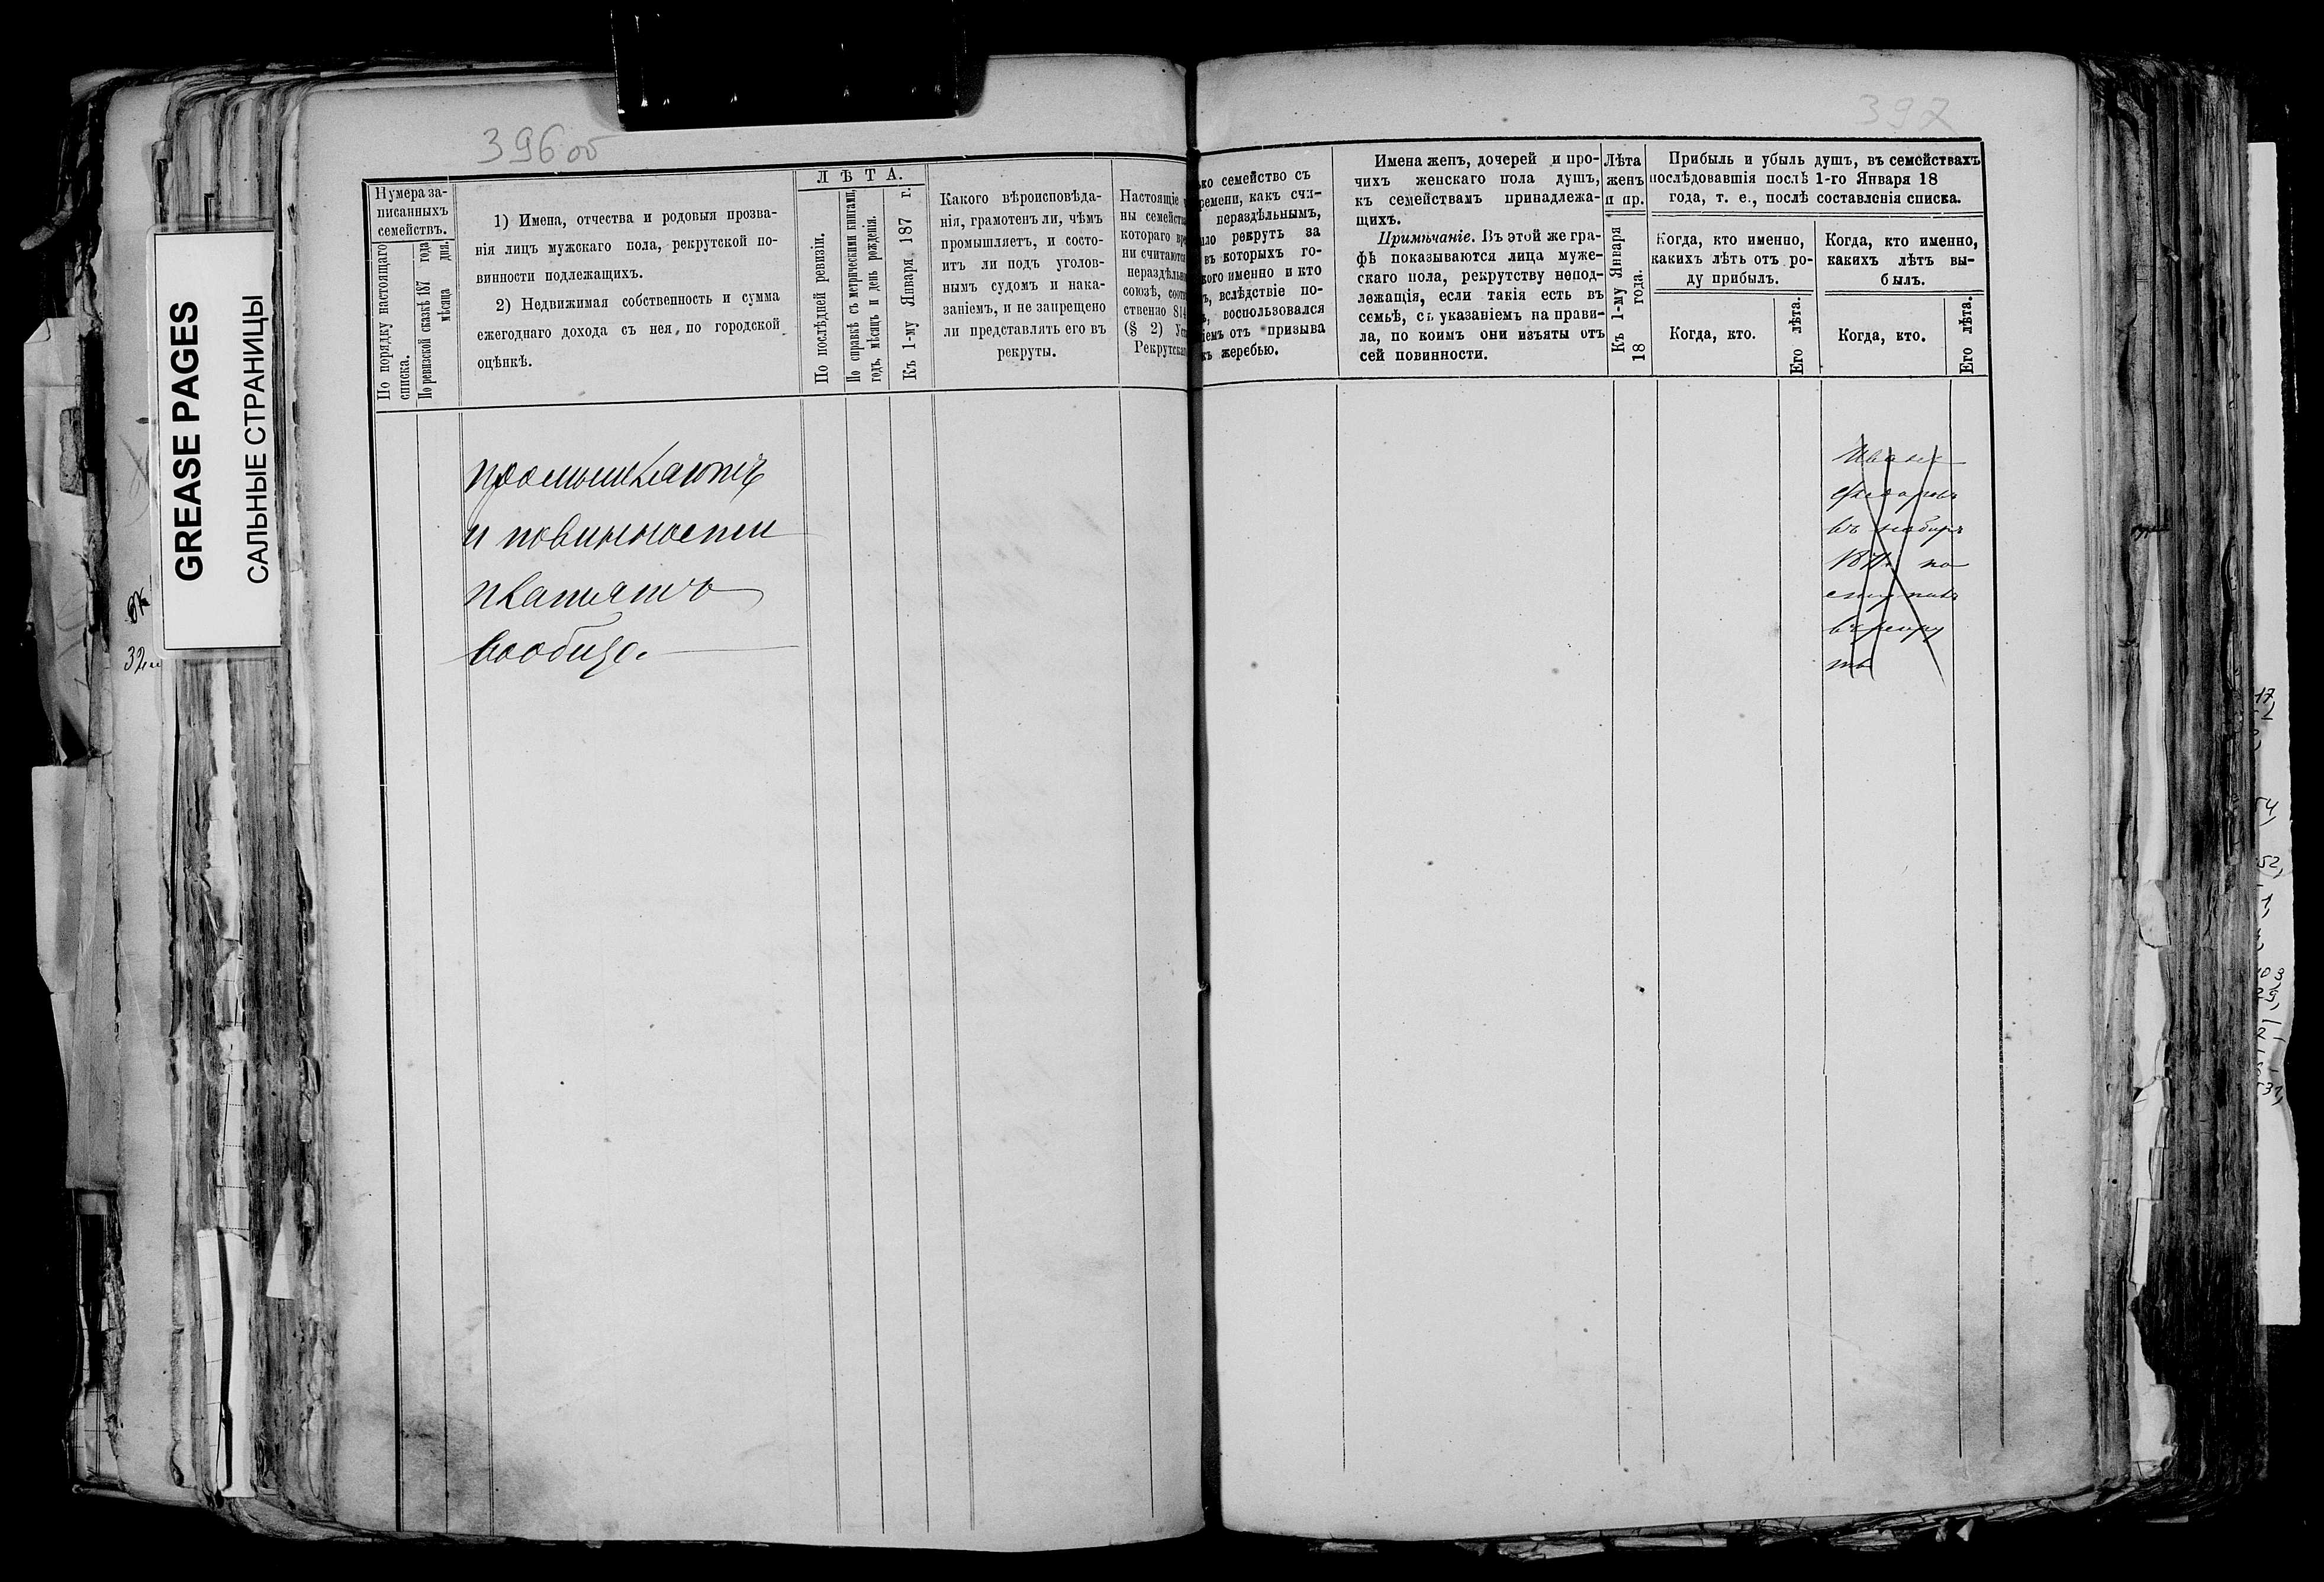 396 об
397
GREASE PAGES
САЛЬНЫЕ СТРАНИЦЫ
Нумера за-
писанныхъ
семействъ.
По порядку настоящаго
списка.
По ревизской сказкѣ 187 года
мѣсяца дня.
1) Имена, отчества и родовыя прозва-
нія лицъ мужскаго пола, рекрутской по-
винности подлежащихъ.
2) Недвижимая собственность и сумма
ежегоднаго дохода съ нея, по городской
оцѣнкѣ.
ЛѢТА.
По послѣдней ревизіи.
По справкѣ съ метрическими книгами,
годъ, мѣсяцъ и день рожденія.
Къ 1-му Января 187 г.
Какого вѣроисповѣда-
нія, грамотенъ ли, чѣмъ
промышляетъ, и состо-
итъ ли подъ уголов-
нымъ судомъ и нака-
заніемъ, и не запрещено
ли представлять его въ
рекруты.
Настоящіе
ны семейства
котораго вре
ни считаются
нераздѣльно
союзѣ, соотв
ственно 814
(§ 2) Уст
Рекрутскаг
промышляютъ
и повинности
платятъ
вообще.
ко семейство съ
ремени, какъ счи-
нераздѣльнымъ,
ыло рекрутъ за
въ которыхъ го-
кого именно и кто
ъ, вслѣдствіе по-
ъ, воспользовался
іемъ отъ призыва
къ жеребью.
Имена женъ, дочерей и про-
чихъ женскаго пола душъ,
къ семействамъ принадлежа-
щихъ.
Примѣчаніе. Въ этой же гра-
фѣ показываются лица муже-
скаго пола, рекрутству непод-
лежащія, если такія есть въ
семьѣ, съ указаніемъ на прави-
ла, по коимъ они изъяты отъ
сей повинности.
Лѣта
женъ
и пр.
Къ 1-му Января
18 года.
Прибыль и убыль душъ, въ семействахъ
послѣдовавшія послѣ 1-го Января 18
года, т. е., послѣ составленія списка.
Когда, кто именно,
какихъ лѣтъ отъ ро-
ду прибылъ.
Когда, кто.
Его лѣта.
Когда, кто именно,
какихъ лѣтъ вы-
былъ.
Когда, кто.
Его лѣта.
Иванъ
въ наборъ
по
ступилъ
въ рекру
ты